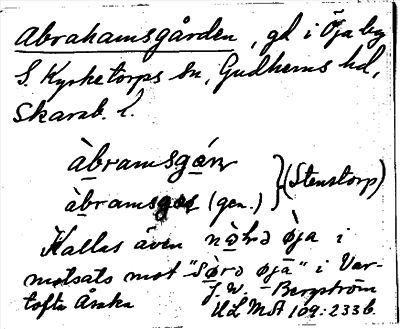 Abrahamsgården, gd i Öja by
S. Kyrketorps sn, Gudhems hd,
Skarab. l.
àbramsgán
àbramsgas (gen.) } (Stenstorp)
Kallas även nǫ̀hrə ø̀ja i
motsats mot "sǫ̀rə ø̀ja" i Var-
tofta Åsaka J. W. Bergström
ULMA 109:233 6.